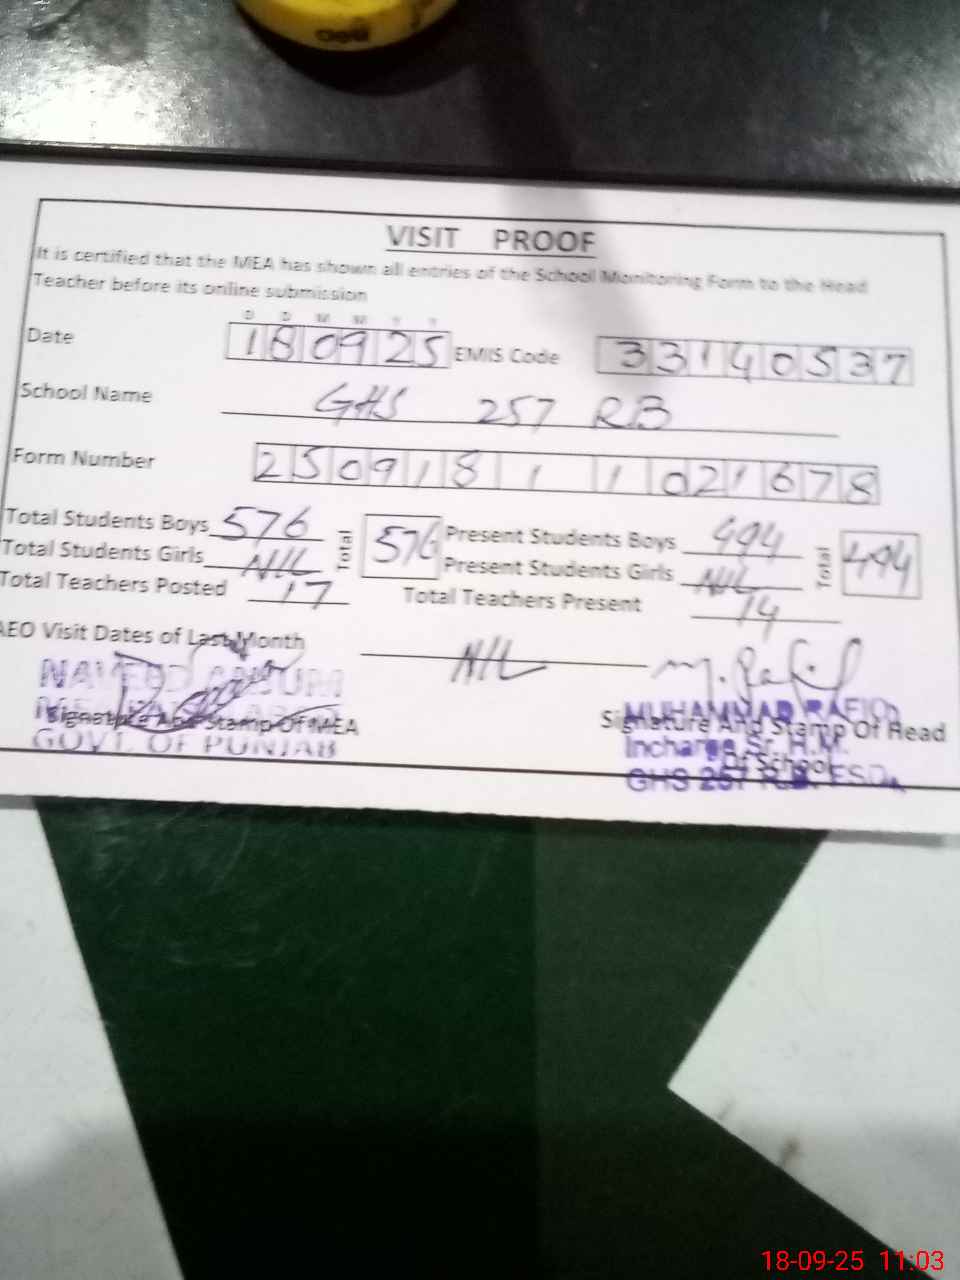 VISIT PROOF
It is certified that the MEA has shown all entries of the School Monitoring Form to the Head
Teacher before its online submission
D D M M Y Y
Date 180925 EMIS Code 33140537
School Name GHS 257 RB
Form Number 250918 1 1 021678
Total Students Boys 576 Total 576 Present Students Boys 494 Total 494
Total Students Girls NIL Present Students Girls NIL
Total Teachers Posted 17 Total Teachers Present 14
AEO Visit Dates of Last Month NIL
M. Rafiq
NAVEED ANJUM MUHAMMAD RAFIQ
Signature And Stamp Of MEA Signature And Stamp Of Head
GOVT. OF PUNJAB Incharge Sr. H.M.
Of School
GHS 257 R.B. FSD
18-09-25 11:03